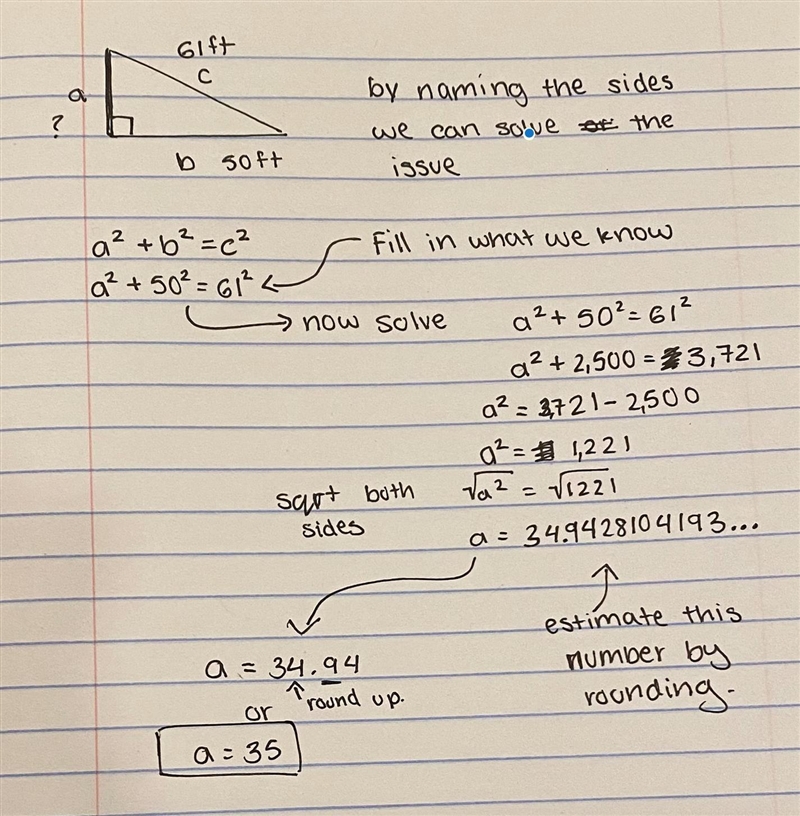 61ft
c
a
?
b 50ft
by naming the sides
we can solve the
issue
a² + b² = c²
Fill in what we know
a² + 50² = 61²
now solve
a² + 50² = 61²
a² + 2,500 = 3,721
a² = 3,721 - 2,500
a² = 1,221
sqrt both
sides
√a² = √1221
a = 34.9428104193...
estimate this
number by
rounding.
a = 34.94
round up.
or
a = 35